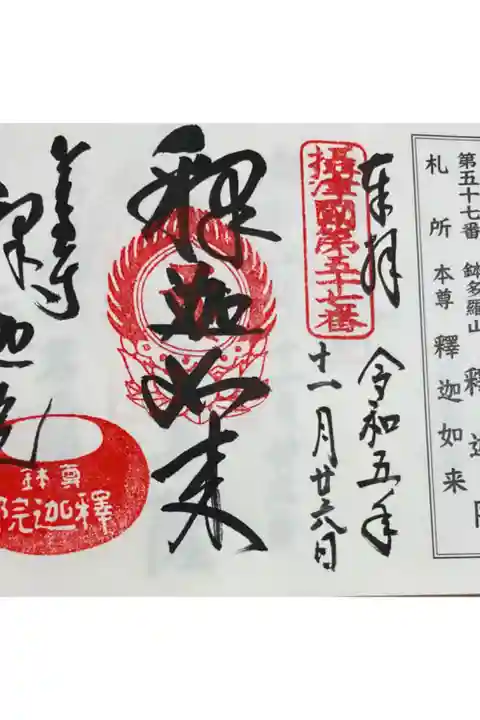 第五十七番 鉢多羅山 釋迦院
札所本尊 釋迦如来
奉拝 令和五年
攝津國第五十七番
十一月廿六日
釋迦如来
若王寺
釋迦院
尊鉢
釋迦院